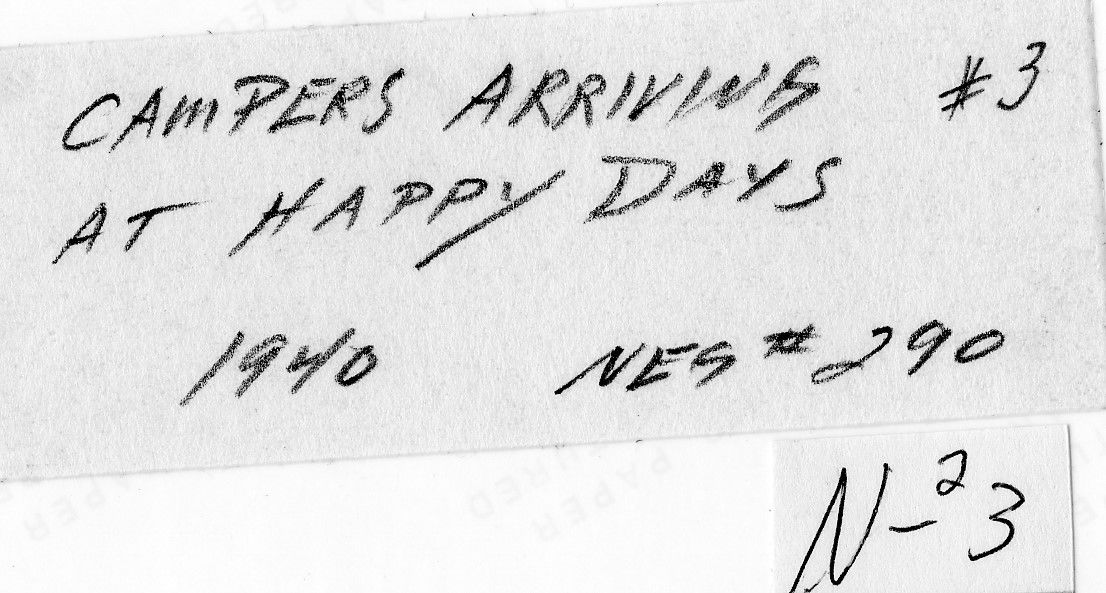 CAMPERS ARRIVING #3
AT HAPPY DAYS
1940 NEG #290
N-23